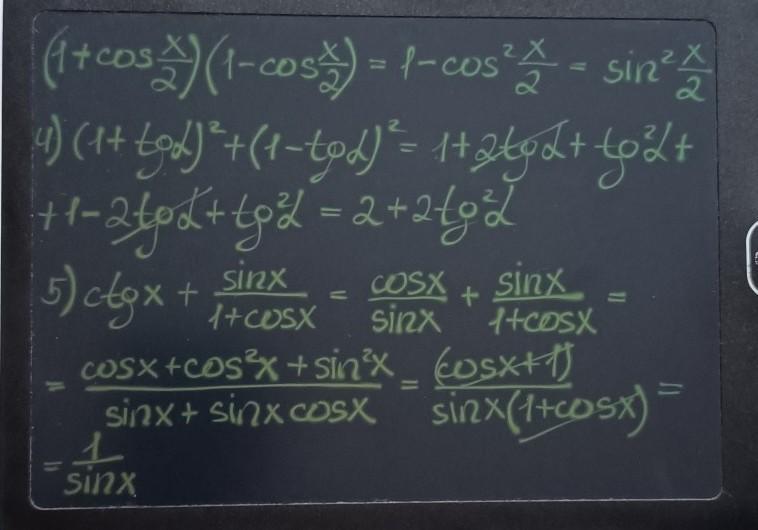 (1+cos x/2)(1-cos x/2) = 1-cos² x/2 = sin² x/2
4) (1+tgα)² + (1-tgα)² = 1+2tgα+tg²α+
+1-2tgα+tg²α = 2+2tg²α
5) ctgx + sinx/1+cosx = cosx/sinx + sinx/1+cosx =
= cosx+cos²x+sin²x/sinx+sinxcosx = (cosx+1)/sinx(1+cosx) =
= 1/sinx